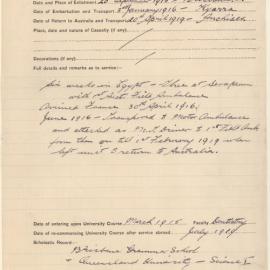 Date and Place of Enlistment
Date of Embarkation and Transport 3rd January 1916 - Kyarra
Date of Return to Australia and Transport 20th April 1919 - Anchises
Place, date and nature of Casualty (if any)
Decorations (if any)
Full details and remarks as to service:—
Six weeks in Egypt - there at Serapeum
with 1st Aust Field Ambulance
Arrived France 30th April 1916.
June 1916 - Transferred to Motor Ambulance
and attached as M.T. Driver to 1st Field Amb
from then on till 1st February 1919 when
left unit to return to Australia.
Date of entering upon University Course March 1915 Faculty Dentistry
Date of re-commencing University Course after service abroad July 1919
Scholastic Record:
Brisbane Grammar School
Queensland University - Science I